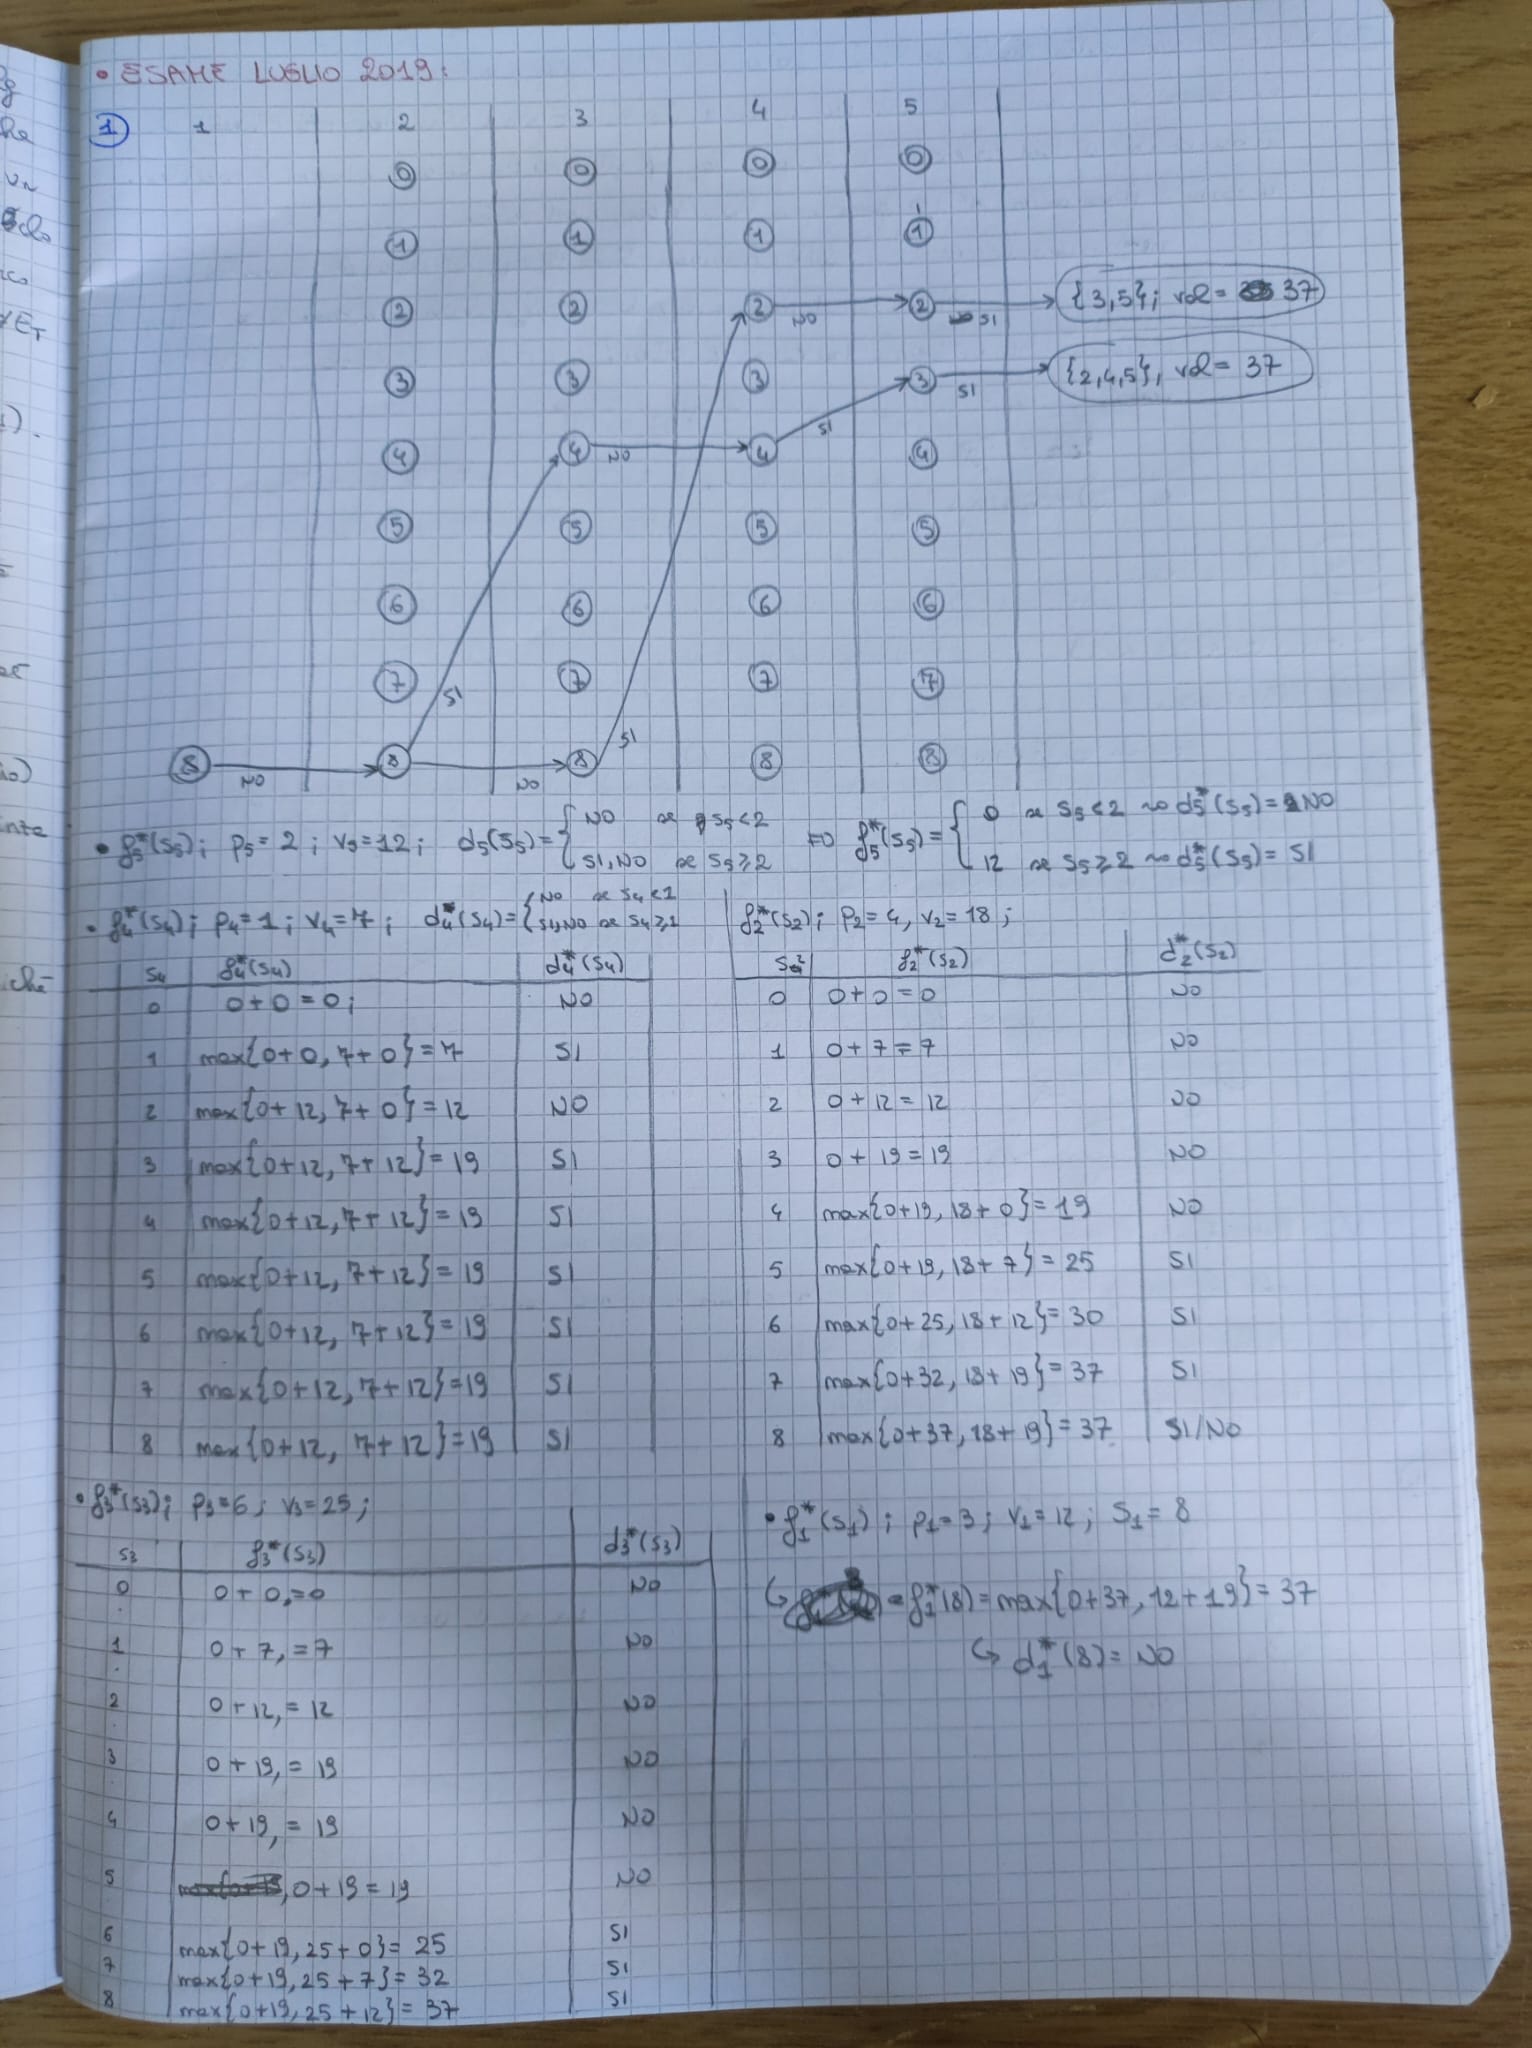 • ESAME LUGLIO 2019:
① 1 2 3 4 5
0 0 0 0
1 1 1 1
2 2 2 NO 2 SI {3,5}; vol = 37
3 3 3 3 SI {2,4,5}, vol = 37
4 4 NO 4 SI 4
5 5 5 5
6 6 6 6
7 SI 7 7 7
8 NO 8 NO 8 SI 8 8
• f5*(S5); p5 = 2; v5 = 12; d5(S5) = { NO se S5 < 2 ; SI, NO se S5 ≥ 2 => f5*(S5) = { 0 se S5 < 2 ~> d5*(S5) = NO ; 12 se S5 ≥ 2 ~> d5*(S5) = SI
• f4*(S4); p4 = 1; v4 = 7; d4*(S4) = { NO se S4 < 1 ; SI, NO se S4 ≥ 1
S4 f4*(S4) d4*(S4)
0 0+0 = 0; NO
1 max{0+0, 7+0} = 7 SI
2 max{0+12, 7+0} = 12 NO
3 max{0+12, 7+12} = 19 SI
4 max{0+12, 7+12} = 19 SI
5 max{0+12, 7+12} = 19 SI
6 max{0+12, 7+12} = 19 SI
7 max{0+12, 7+12} = 19 SI
8 max{0+12, 7+12} = 19 SI
f2*(S2); p2 = 4, v2 = 18;
S2 f2*(S2) d2*(S2)
0 0+0 = 0 NO
1 0+7 = 7 NO
2 0+12 = 12 NO
3 0+19 = 19 NO
4 max{0+19, 18+0} = 19 NO
5 max{0+19, 18+7} = 25 SI
6 max{0+25, 18+12} = 30 SI
7 max{0+32, 18+19} = 37 SI
8 max{0+37, 18+19} = 37 SI/NO
• f3*(S3); p3 = 6; v3 = 25;
S3 f3*(S3) d3*(S3)
0 0+0, = 0 NO
1 0+7, = 7 NO
2 0+12, = 12 NO
3 0+19, = 19 NO
4 0+19, = 19 NO
5 , 0+19 = 19 NO
6 max{0+19, 25+0} = 25 SI
7 max{0+19, 25+7} = 32 SI
8 max{0+19, 25+12} = 37 SI
• f1*(S1); p1 = 3; v1 = 12; S1 = 8
↳ f1*(8) = max{0+37, 12+19} = 37
↳ d1*(8) = NO